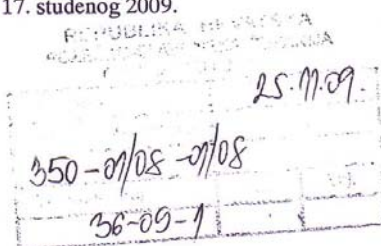 17. studenog 2009.
REPUBLIKA HRVATSKA
25.11.09.
350-01/08-01/08
36-09-1